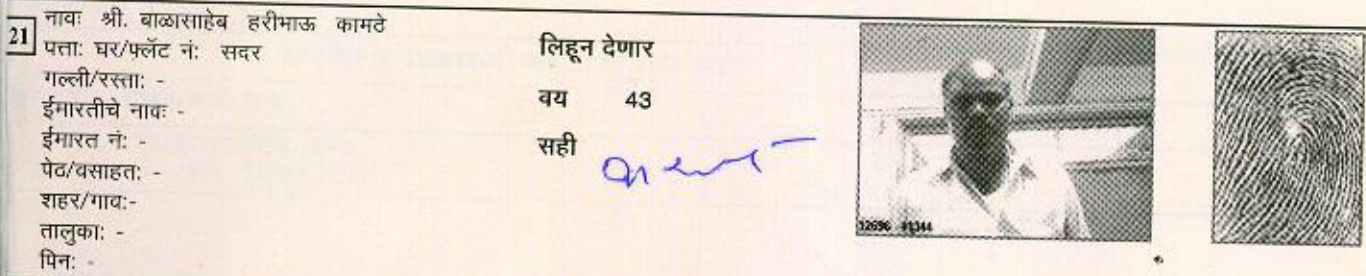 21
नावः श्री. बाळासाहेब हरीभाऊ कामठे
पत्ता: घर/फ्लॅट नं: सदर
गल्ली/रस्ता: -
ईमारतीचे नावः -
ईमारत नं: -
पेठ/वसाहत: -
शहर/गाव:-
तालुका: -
पिन: -
लिहून देणार
वय 43
सही
12696 41344